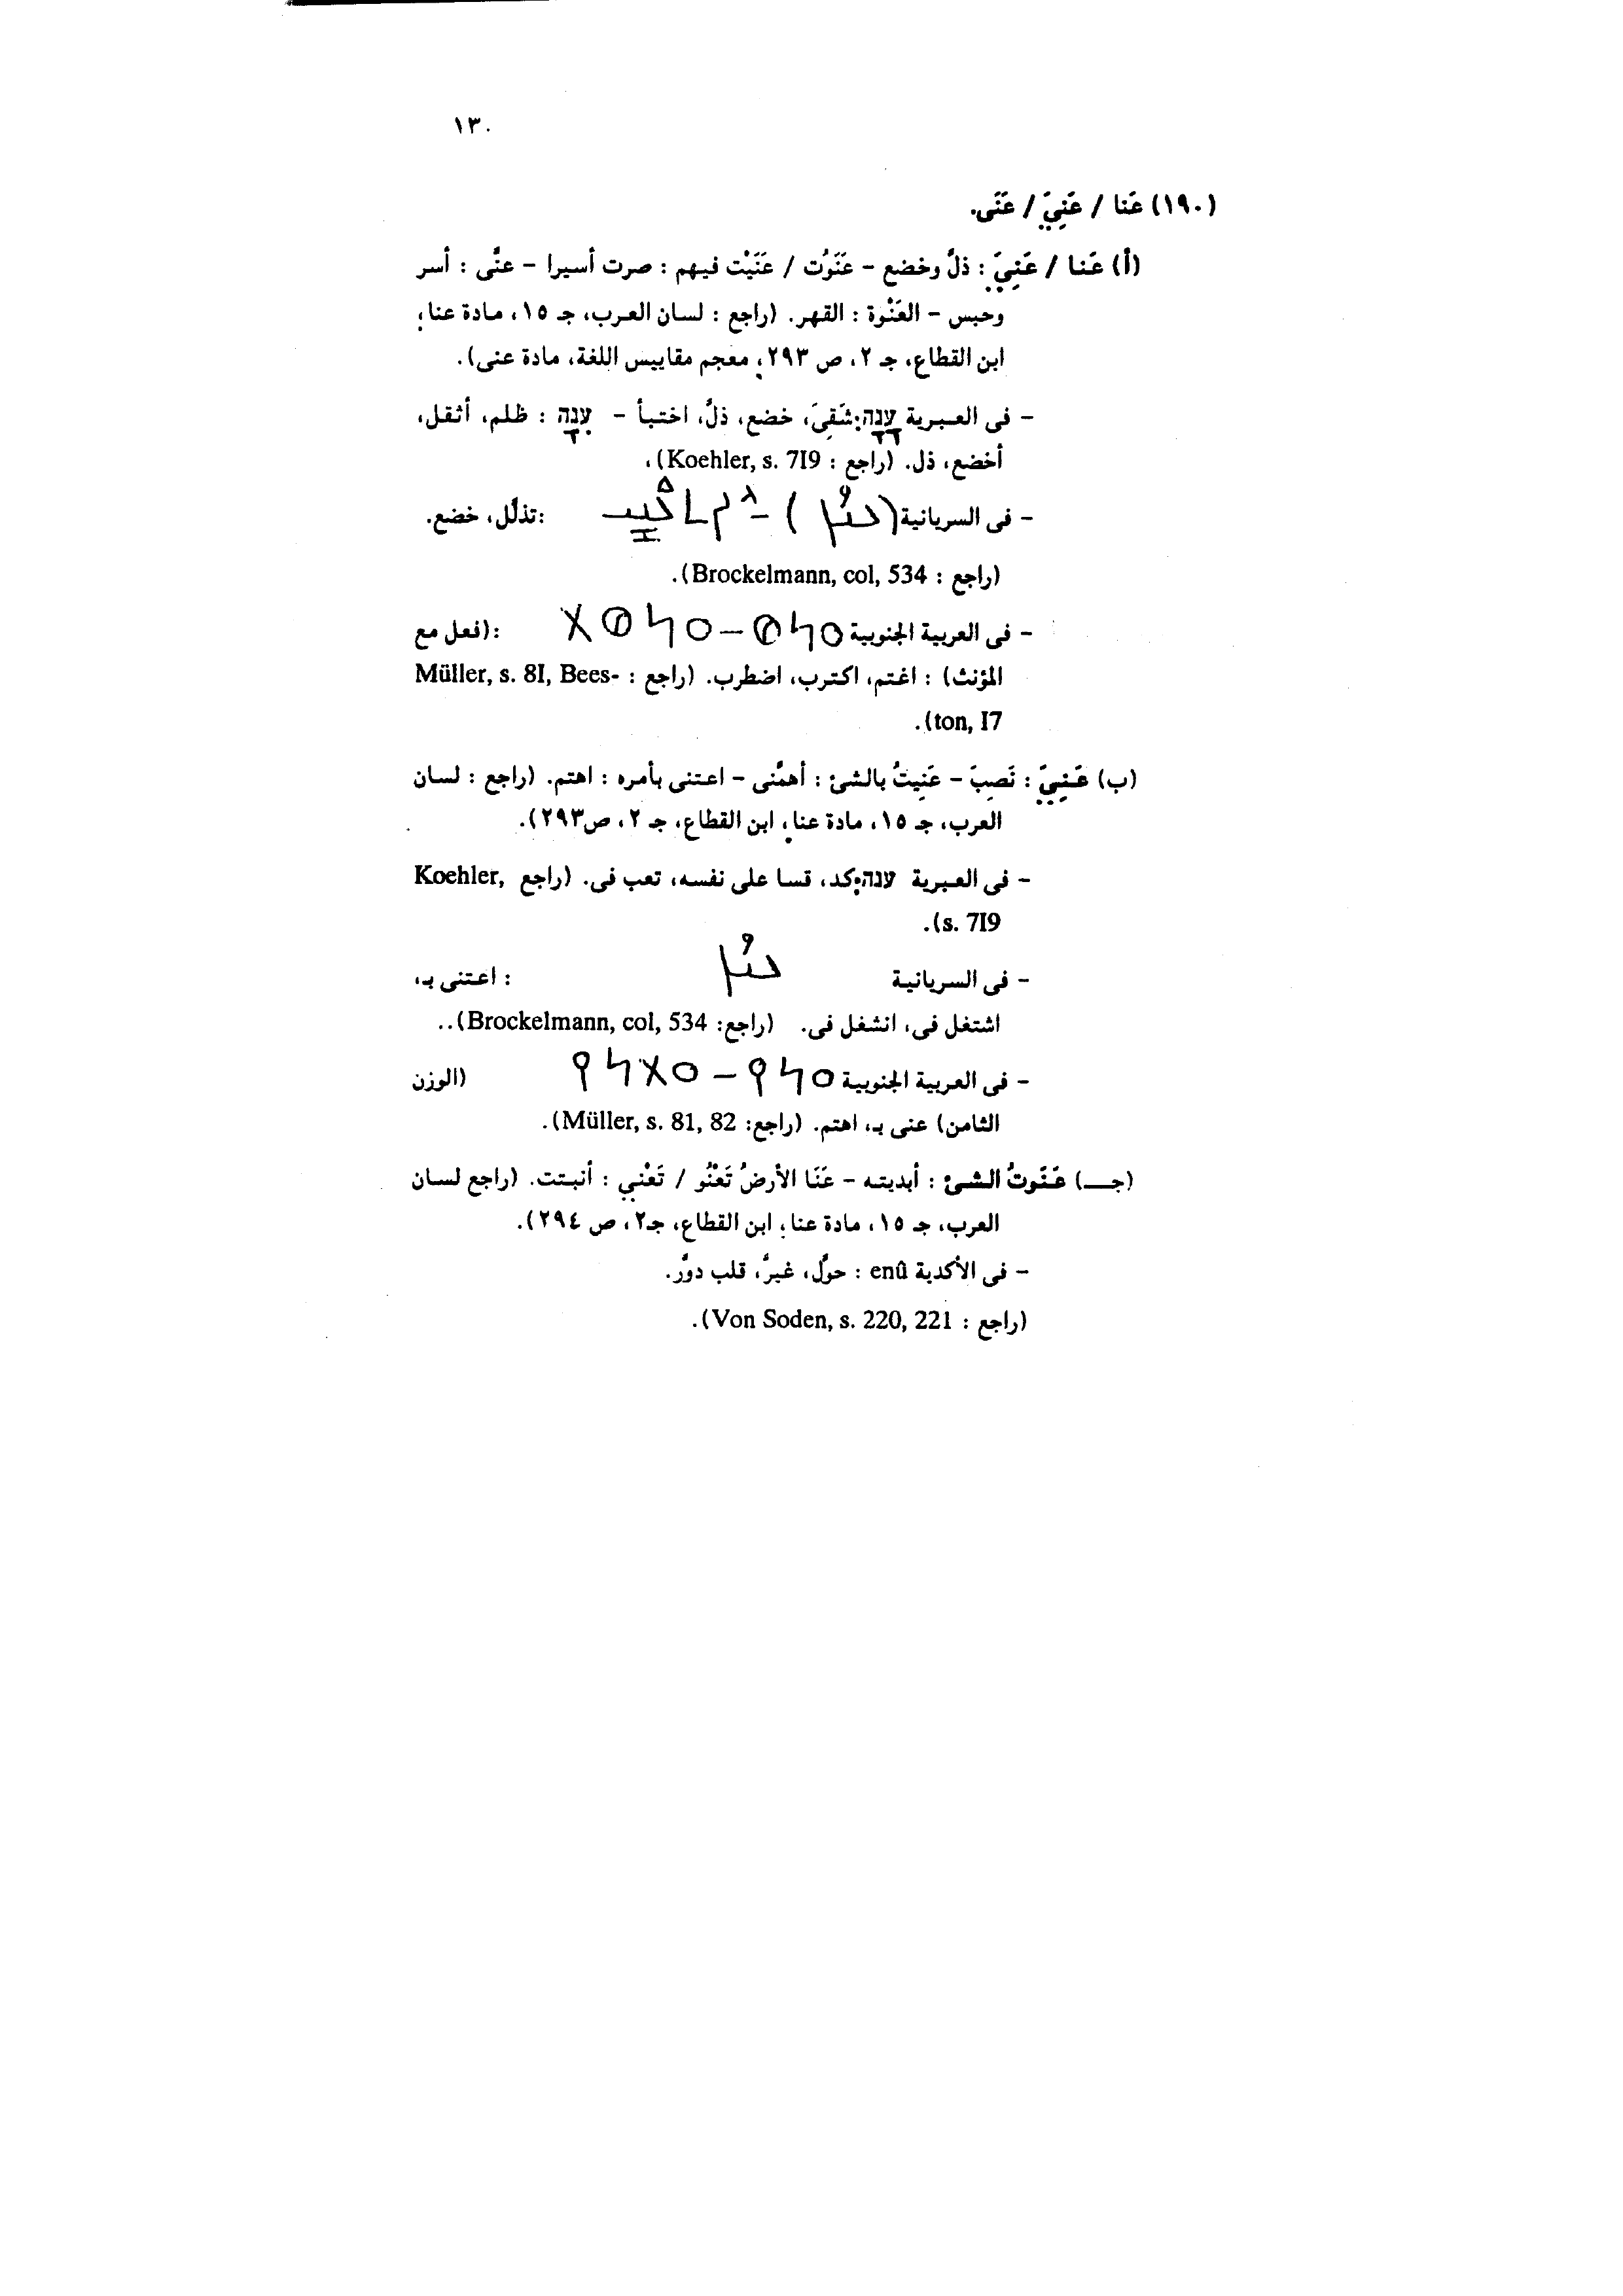 ١٣٠
(١٩٠) عَنا / عَنِيَ / عَنَى.
(أ) عَنا / عَنِيَ : ذلَّ وخضع – عَنَوُت / عَنَيْت فيهم : صرت أسيرا – عنَّى : أسر
وحبس – العَنْوة : القهر. (راجع : لسان العرب، جـ ١٥، مادة عنا؛
ابن القطاع، جـ ٢، ص ٢٩٣؛ معجم مقاييس اللغة، مادة عنى).
– فى العبرية עָנָה: شَقِىَ، خضع، ذلَّ، اختبأ – עִנָּה : ظلم، أثقل،
أخضع، ذل. (راجع : Koehler, s. 7I9)،
– فى السريانية (ܥܢܳܐ) – :تذلّل، خضع.
(راجع : Brockelmann, col, 534).
– فى العربية الجنوبية 𐩲𐩬𐩥 – 𐩲𐩬𐩥𐩩 :(فعل مع
المؤنث) : اغتم، اكترب، اضطرب. (راجع : Müller, s. 8I, Bees-
ton, I7).
(ب) عَنِيَ : نَصِبَ – عَنِيتُ بالشئ : أهمَّنى – اعتنى بأمره : اهتم. (راجع : لسان
العرب، جـ ١٥، مادة عنا؛ ابن القطاع، جـ ٢، ص٢٩٣).
– فى العبرية ענה: كد، قسا على نفسه، تعب فى. (راجع Koehler,
s. 7I9).
– فى السريانية ܥܢܳܐ : اعتنى بـ،
اشتغل فى، انشغل فى. (راجع: Brockelmann, col, 534)..
– فى العربية الجنوبية 𐩲𐩬𐩺 – 𐩲𐩩𐩬𐩺 (الوزن
الثامن) عنى بـ، اهتم. (راجع: Müller, s. 81, 82).
(جـ) عَنَوتُ الشئ : أبديته – عَنَا الأرضُ تَعْنُو / تَعْنِي : أنبتت. (راجع لسان
العرب، جـ ١٥، مادة عنا؛ ابن القطاع، جـ٢، ص ٢٩٤).
– فى الأكدية enû : حوَّل، غيرَّ، قلب دوَّر.
(راجع : Von Soden, s. 220, 221).